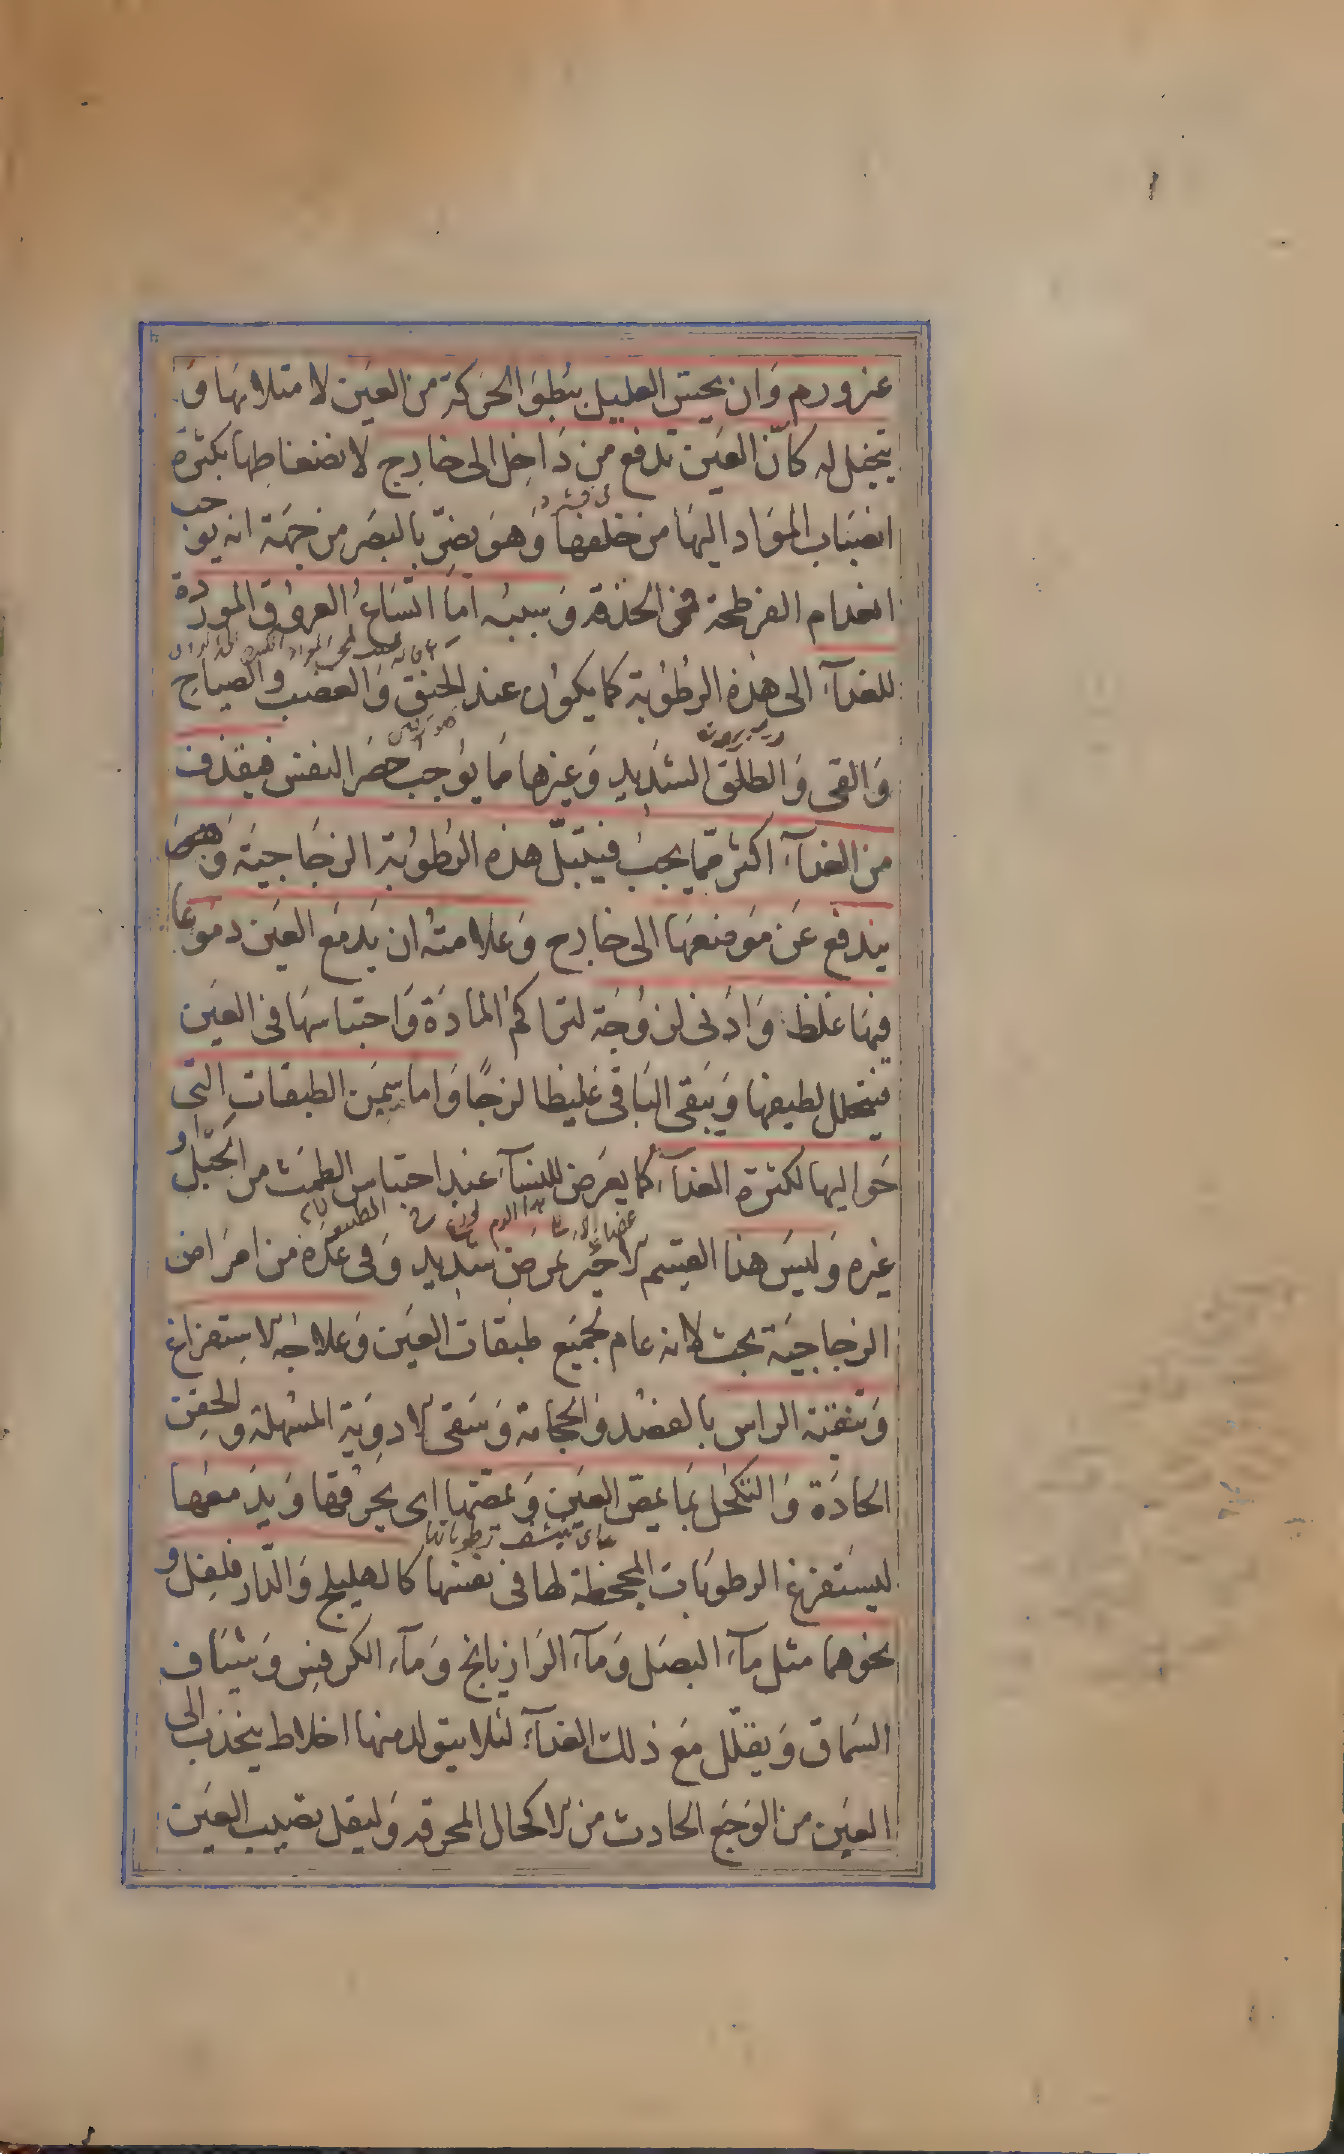 غير ورم وان يحس العليل ببطؤ الحركة من العين لامتلائها و
يتخيل له كأنّ العين تدفع من داخل الى خارج لانضغاطها بكثرة
انصباب المواد اليها من خلفها وهو يضرّ بالبصر من جهة انه يوجب
انعدام الفرطحة فى الحدقه وسببه اما اتساع العروق الموردة
للغدآء الى هذه الرطوبة كما يكون عند الخنق والغضب والصياح
والقى والطلق الشديد وغيرها مما يوجب حصر النفس فيقذف
من الغدآء اكثر مما يجب فيتبلّ هذه الرطوبة الزجاجية و
يندفع عن موضعها الى خارج وعلامته ان يدمع العين دموعا
فيها غلظ وادنى لزوجة لتراكم المادة واحتباسها فى العين
فيتحلل لطيفها ويبقى الباقى غليظا لزجًا واما سمن الطبقات التى
حواليها لكثرة الغدآء كما يعرض للنسآء عند احتباس الطمث من الحبل او
غيره وليس هذا القسم الاخير بمرض شديد وفى عدّه من امراض
الزجاجية بحث لانه عام لجميع طبقات العين وعلاجه الاستفراغ
وتنقية الراس بالفصد والحجامة وسقى الادوية المسهلة والحقن
الحادة والتكحل بما يمضّ العين ويمضّها اى يحرقها ويدمعها
اى تنشف رطوباتها
ليستفرغ الرطوبات المجحظة لها فى نفسها كالهليلج والدارفلفل و
نحوهما مثل مآء البصل ومآء الرازيانج ومآء الكرفس وشياف
السماق ويقلّل مع ذلك الغدآء لئلا يتولد منها اخلاط ينجذب الى
العين من الوجع الحادث من الاكحال المحرقه وليقل نصيب العين